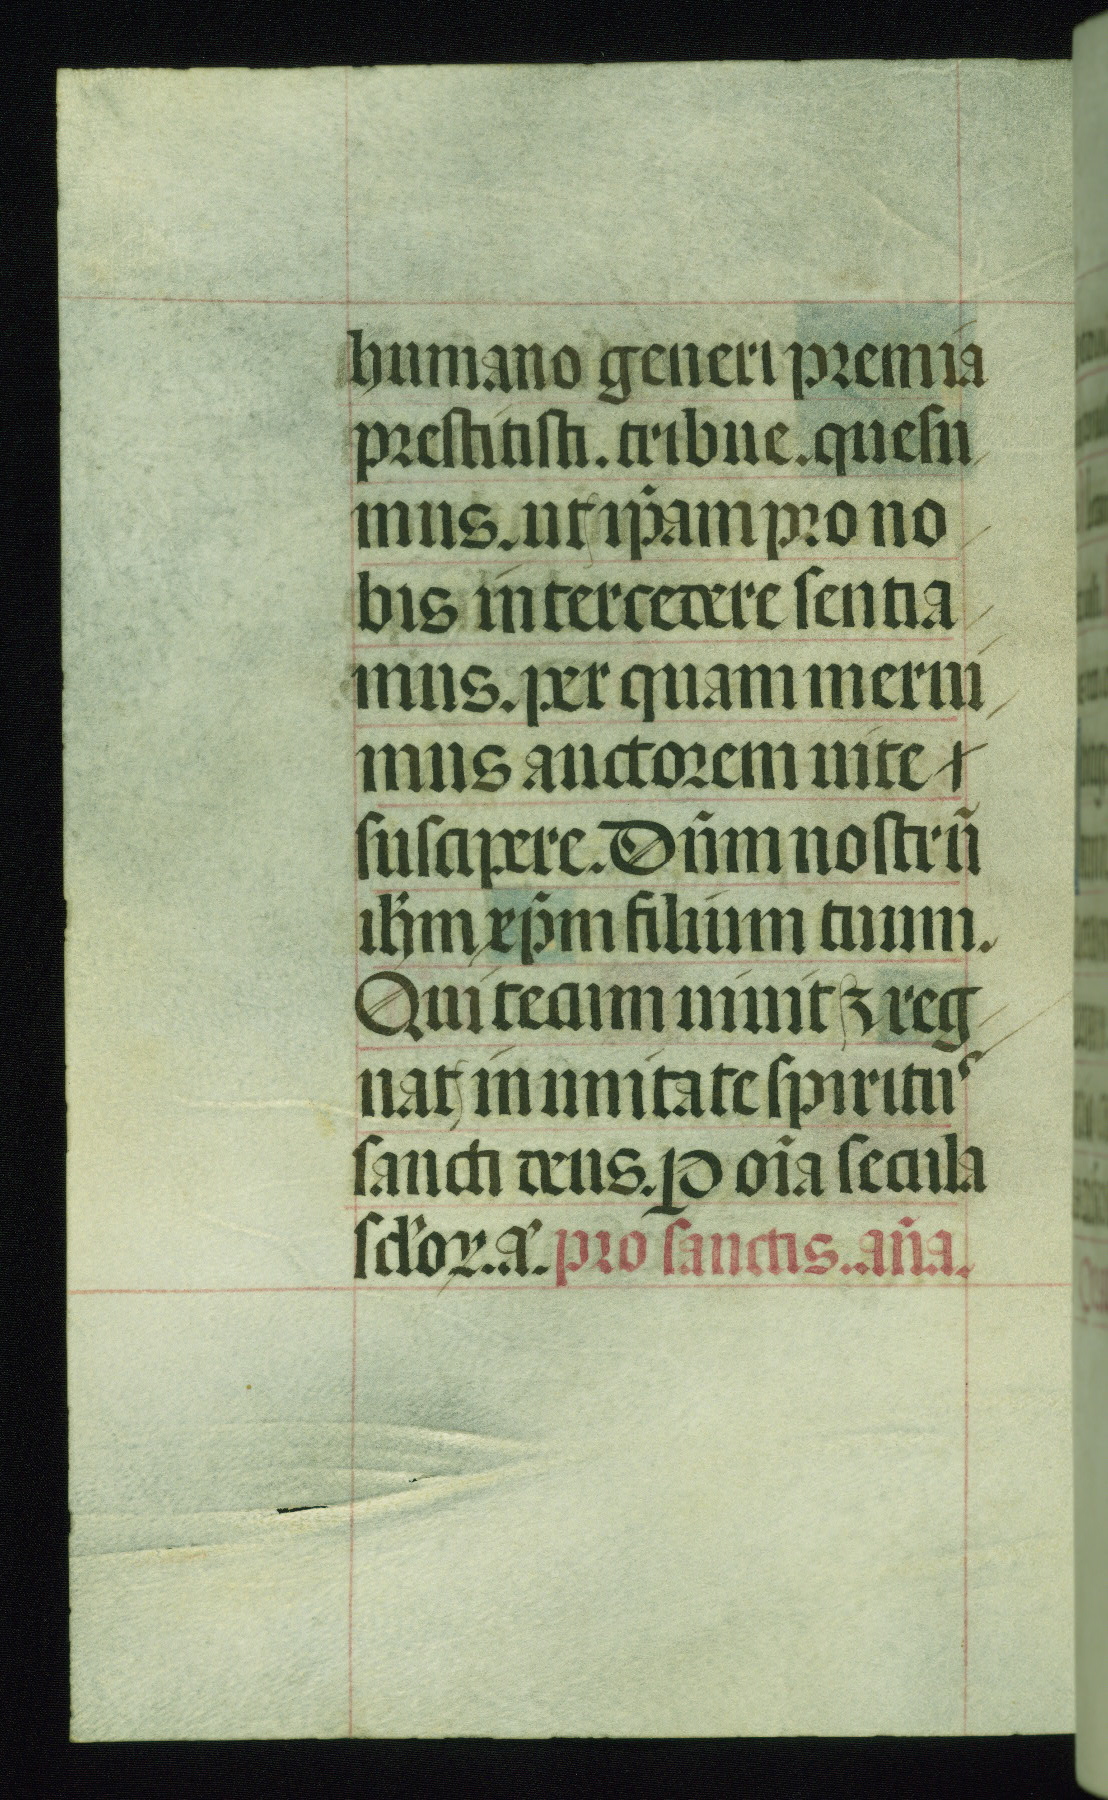 humano generi premia
prestitisti. tribue. quesu
mus. ut ip̄am pro no
bis intercedere sentia
mus. per quam merui
mus auctorem uite
suscipere. Dn̄m nostrū
ihm̄ xp̄m filium tuum.
Qui tecum uiuit ⁊ reg
nat in unitate spiritus
sancti deus. P oīa secula
sclőꝝ. a. pro sanctis. an̄a.